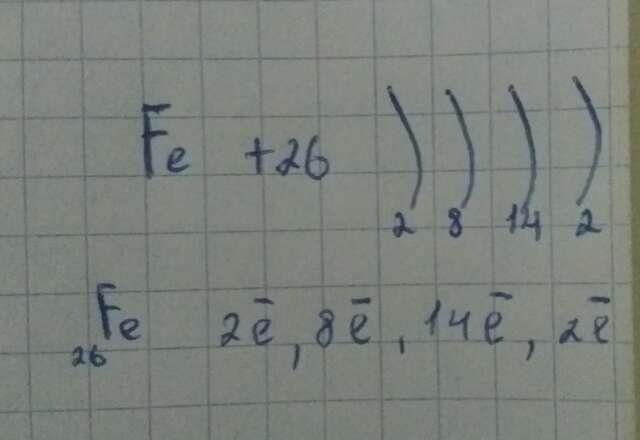 Fe +26 ) ) ) )
2 8 14 2
₂₆Fe 2ē, 8ē, 14ē, 2ē